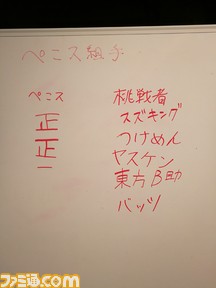 ペニス組手
ペニス 挑戦者
正 スズキング
正 つけめん
一 ヤスケン
東方β助
バッツ
ファミ通.com